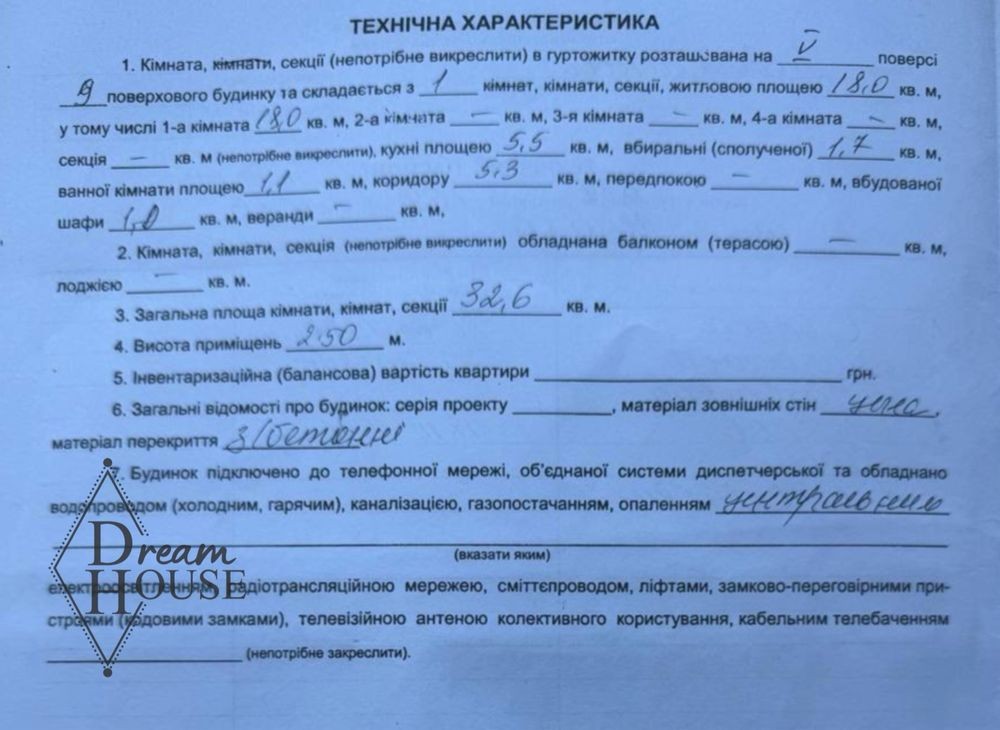 ТЕХНІЧНА ХАРАКТЕРИСТИКА
1. Кімната, кімнати, секції (непотрібне викреслити) в гуртожитку розташована на V поверсі
9 поверхового будинку та складається з 1 кімнат, кімнати, секції, житловою площею 18,0 кв. м,
у тому числі 1-а кімната 18,0 кв. м, 2-а кімната — кв. м, 3-я кімната — кв. м, 4-а кімната — кв. м,
секція — кв. м (непотрібне викреслити), кухні площею 5,5 кв. м, вбиральні (сполученої) 1,7 кв. м,
ванної кімнати площею 1,1 кв. м, коридору 5.3 кв. м, передпокою — кв. м, вбудованої
шафи 1,0 кв. м, веранди — кв. м,
2. Кімната, кімнати, секція (непотрібне викреслити) обладнана балконом (терасою) — кв. м,
лоджією — кв. м.
3. Загальна площа кімнати, кімнат, секції 32,6 кв. м.
4. Висота приміщень 2.50 м.
5. Інвентаризаційна (балансова) вартість квартири грн.
6. Загальні відомості про будинок: серія проекту , матеріал зовнішніх стін
матеріал перекриття з/бетонні
7. Будинок підключено до телефонної мережі, об'єднаної системи диспетчерської та обладнано
водопроводом (холодним, гарячим), каналізацією, газопостачанням, опаленням
(вказати яким)
електроосвітленням, радіотрансляційною мережею, сміттєпроводом, ліфтами, замково-переговірними при-
строями (кодовими замками), телевізійною антеною колективного користування, кабельним телебаченням
(непотрібне закреслити).
Dream
House